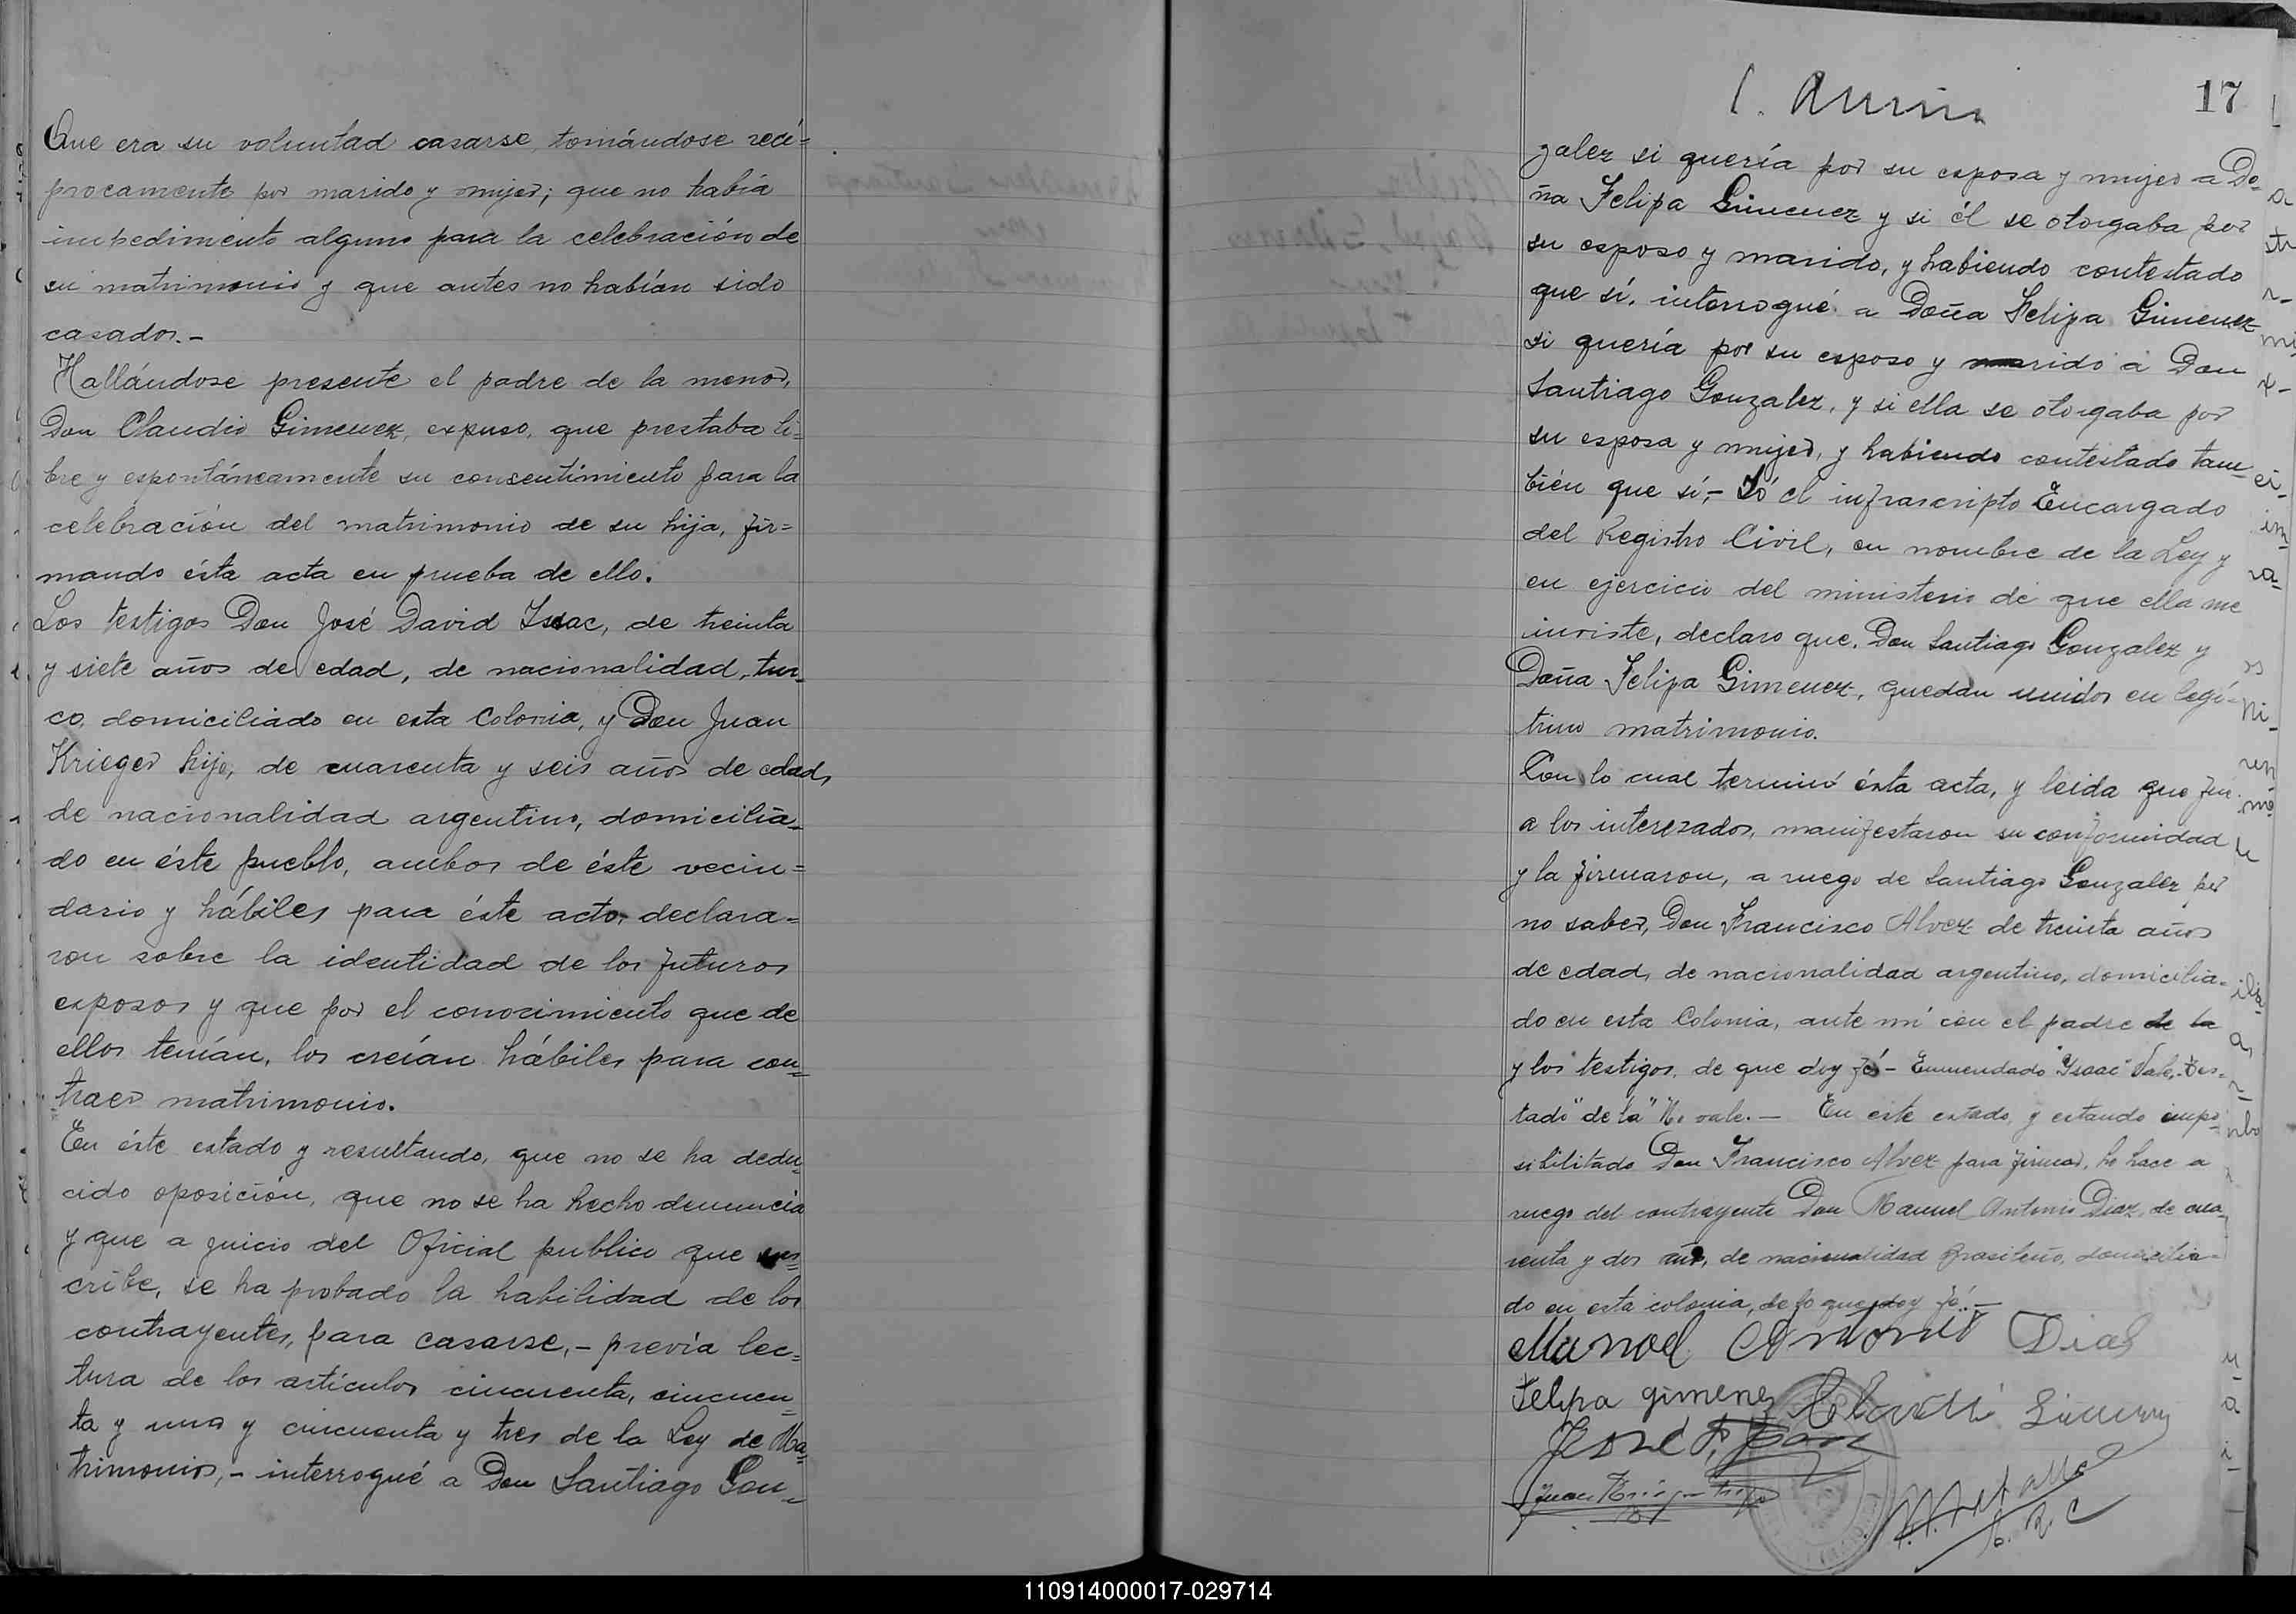 Que era su voluntad casarse, tomándose recí=
procamente por marido y mujer; que no había
impedimento alguno para la celebración de
su matrimonio y que antes no habían sido
casados.-
Hallándose presente el padre de la menor,
Don Claudio Gimenez, expuso, que prestaba li=
bre y espontáneamente su consentimiento para la
celebración del matrimonio de su hija, fir=
mando ésta acta en prueba de ello.
Los testigos Don José David Isaac, de treinta
y siete años de edad, de nacionalidad, tur-
co, domiciliado en esta Colonia, y Don Juan
Krieger hijo, de cuarenta y seis años de edad,
de nacionalidad argentino, domicilia-
do en éste pueblo, ambos de éste vecin=
dario y hábiles para éste acto, declara=
ron sobre la identidad de los futuros
esposos y que por el conocimiento que de
ellos tenían, los creían hábiles para con=
traer matrimonio.
En éste estado y resultando, que no se ha dedu-
cido oposición, que no se ha hecho denuncia
y que a juicio del Oficial publico que sus=
cribe, se ha probado la habilidad de los
contrayentes, para casarse,- previa lec=
tura de los artículos cincuenta, cincuen=
ta y uno y cincuenta y tres de la Ley de Ma=
trimonio,- interrogué a Don Santiago Gon=
17
zalez si quería por su esposa y mujer a Do-
ña Felipa Gimenez y si él se otorgaba por
su esposo y marido, y habiendo contestado
que sí, interrogué a Doña Felipa Gimenez
si quería por su esposo y marido a Don
Santiago Gonzalez, y si ella se otorgaba por
su esposa y mujer, y habiendo contestado tam-
bién que sí,- Yó el infrascripto Encargado
del Registro Civil, en nombre de la Ley y
en ejercicio del ministerio de que ella me
inviste, declaro que, Don Santiago Gonzalez y
Doña Felipa Gimenez, quedan unidos en legí-
timo matrimonio.
Con lo cual terminó ésta acta, y leida que fue
a los interezados, manifestaron su conformidad
y la firmaron, a ruego de Santiago Gonzalez por
no saber, Don Francisco Alvez de treinta años
de edad, de nacionalidad argentino, domicilia-
do en esta Colonia, ante mí con el padre de la
y los testigos, de que doy fé- Enmendado "Isaac" Vale.- Tes-
tado "de la" No vale.- En este estado, y estando impo-
sibilitado Don Francisco Alvez para firmar, lo hace a
ruego del contrayente Don Manuel Antonio Diaz, de cua-
renta y dos años, de nacionalidad Brasileño, domicilia-
do en esta colonia, de lo que doy fé.-
Manoel Antonio Dias
Felipa gimenez Claudio Gimenez
José D. Isaac
Juan Krieger hijo